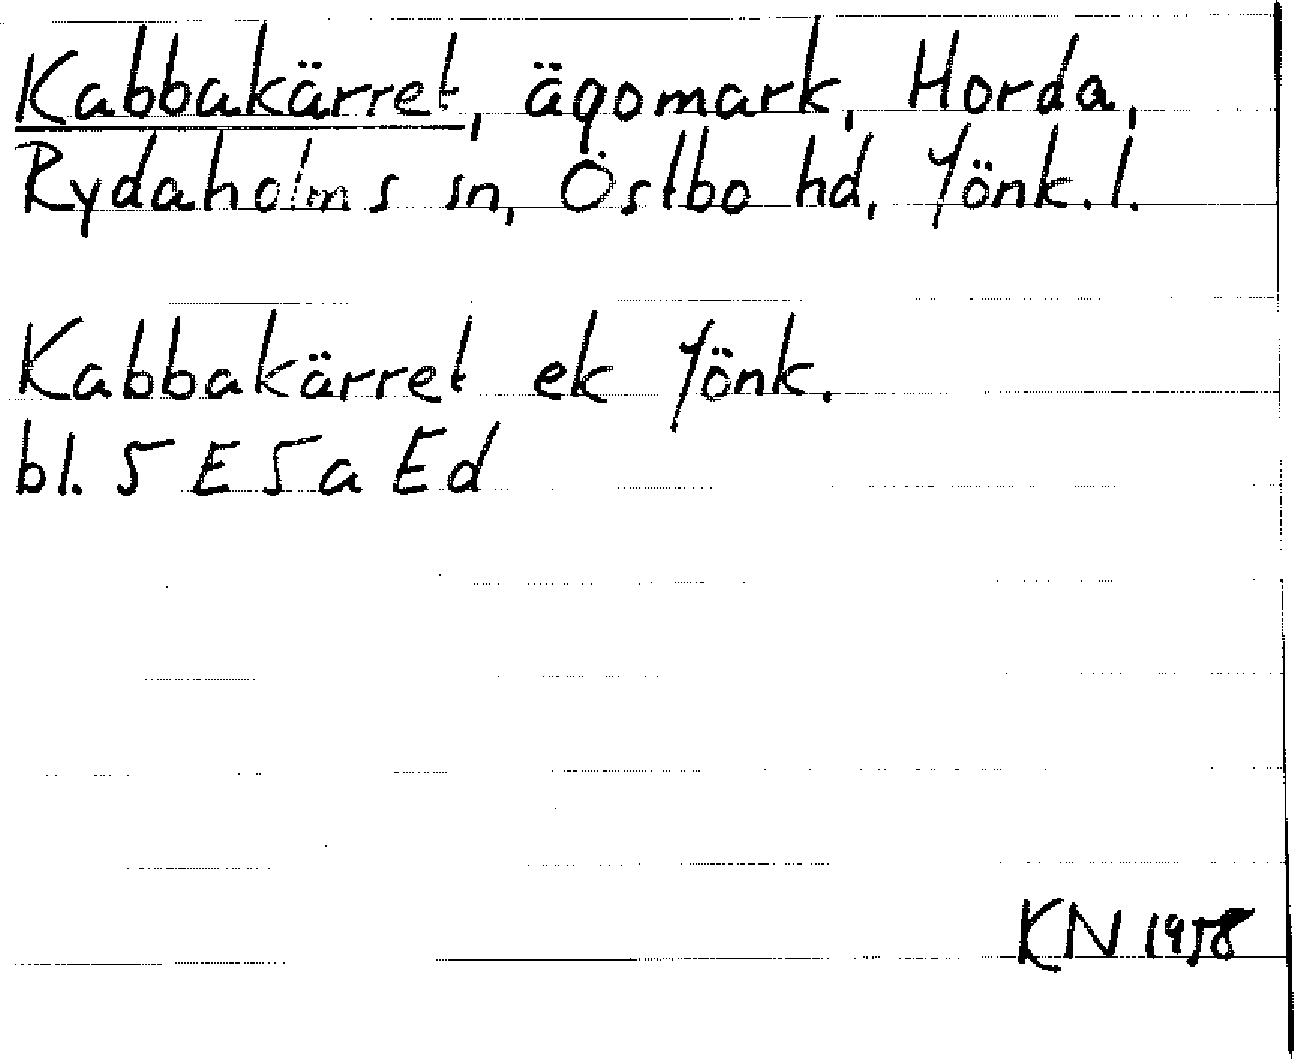 Kabbakärret, ägomark, Horda,
Rydaholms sn, Östbo hd, Jönk. l.
Kabbakärret ek Jönk.
bl. 5 E 5 a Ed
KN 1958